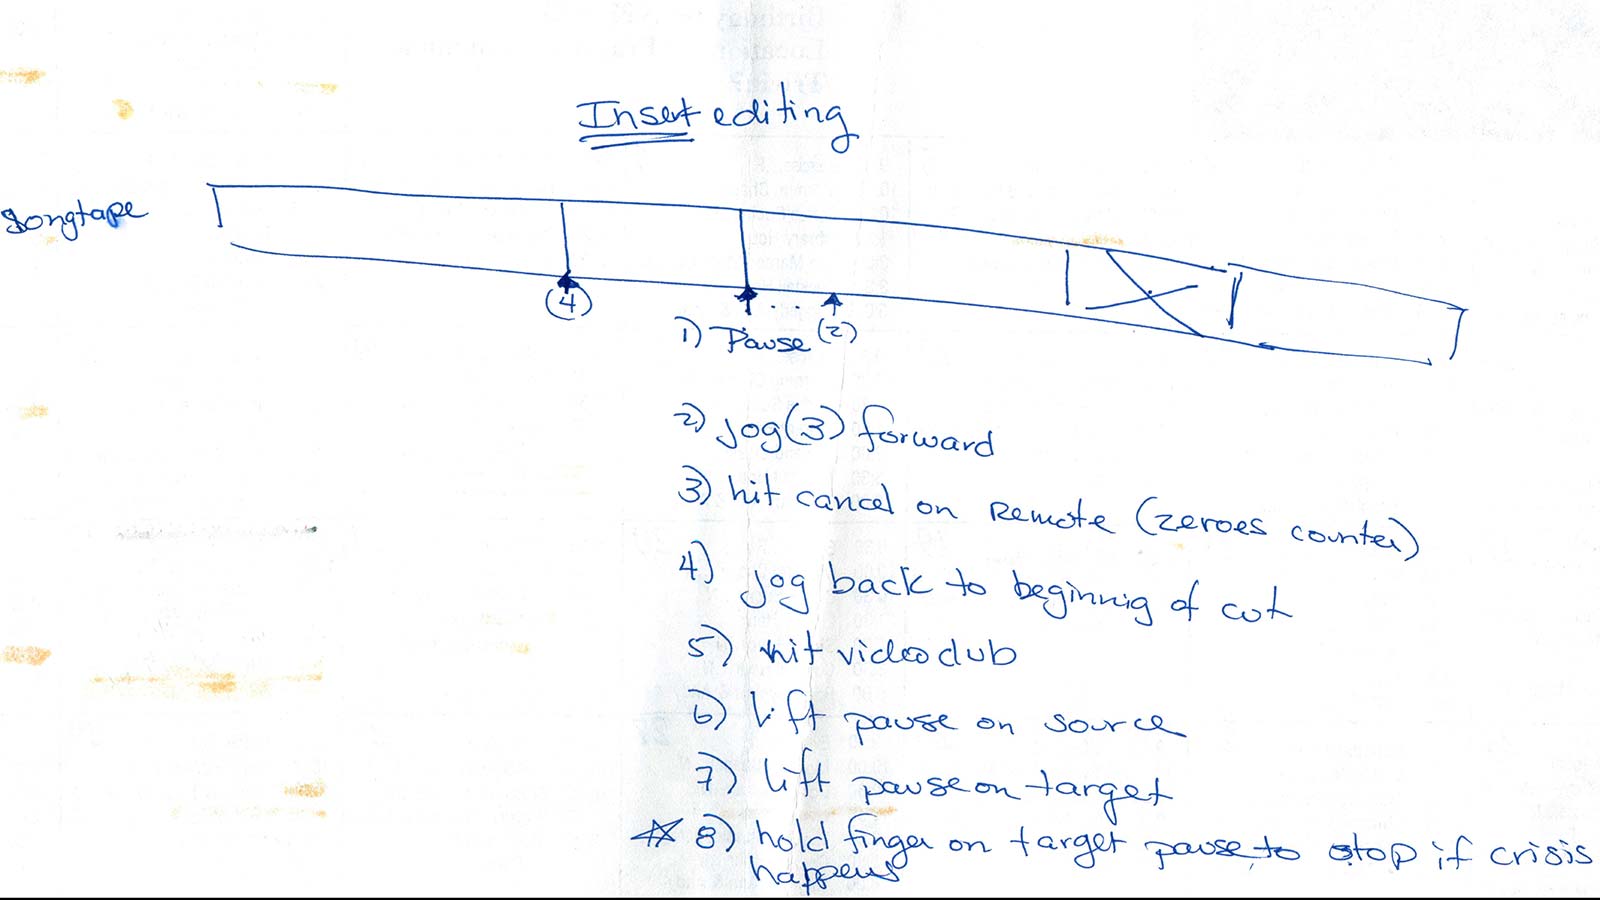 Insert editing
Songtape
(4)
1) Pause (2)
2) jog (3) forward
3) hit cancel on remote (zeroes counter)
4) jog back to beginnig of cut
5) hit video dub
6) lift pause on source
7) lift pause on target
8) hold finger on target pause to stop if crisis
happens